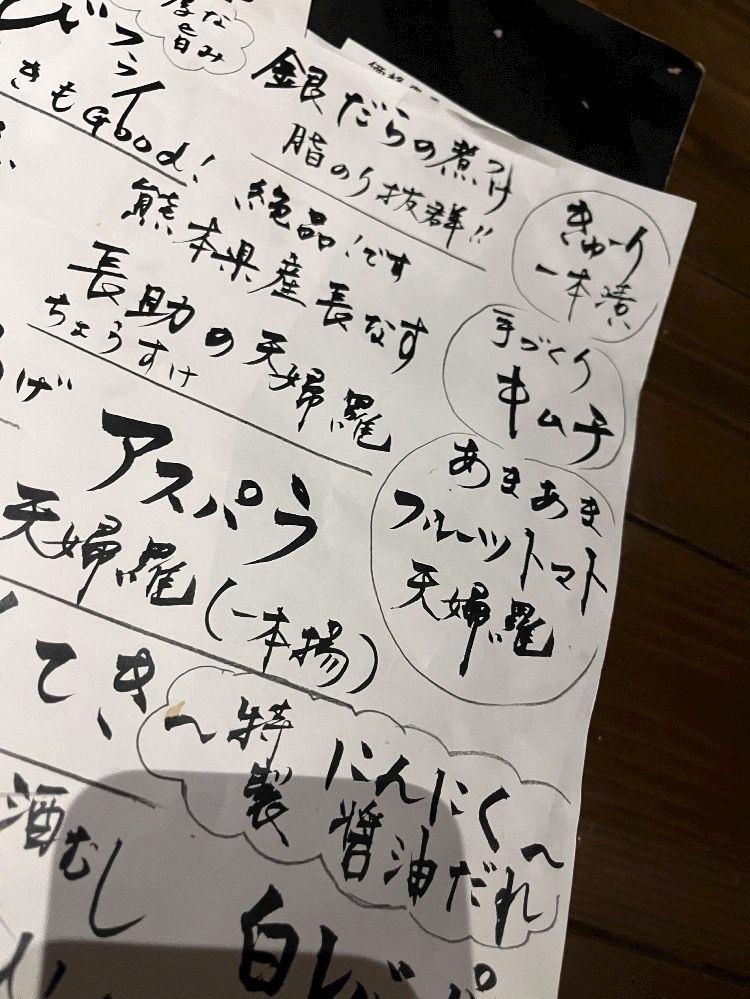 銀だらの煮つけ
脂のり抜群!!
きゅーり
一本漬
手づくり
キムチ
あまあま
フルーツトマト
天婦羅
な
旨み
きもGood!
絶品!です
熊本県産長なす
長助の天婦羅
ちょうすけ
げ
アスパラ
天婦羅(一本揚)
てき
~特製
にんにく~
醤油だれ
酒むし
白レバ